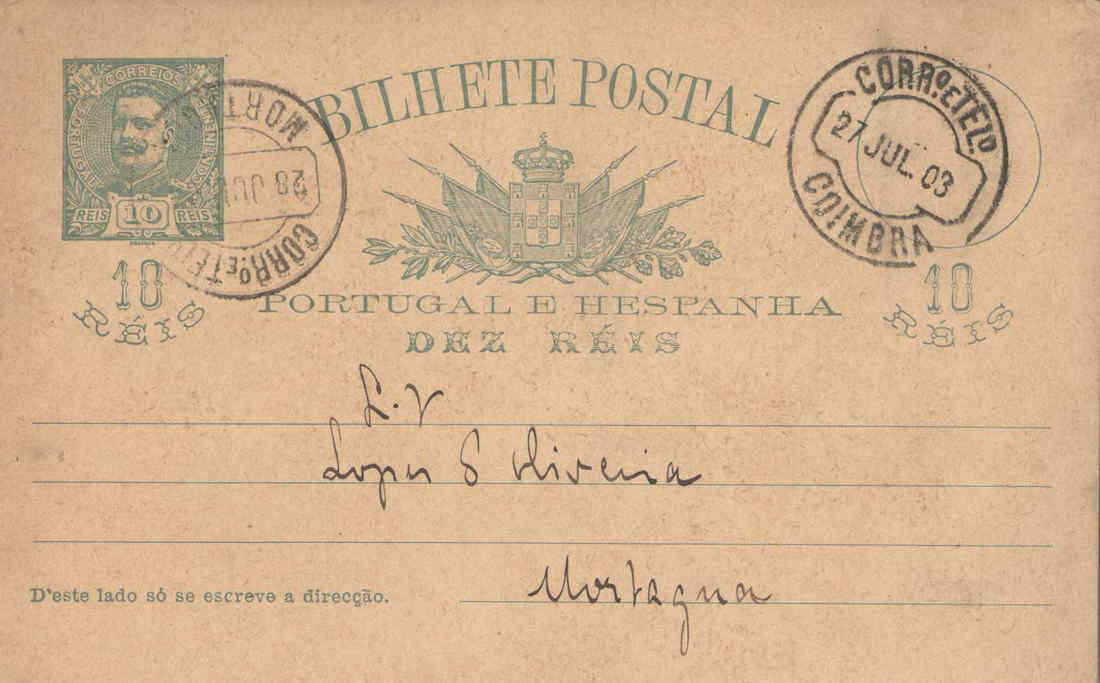 CORREIOS
REIS 10 REIS
MORT
28 JU
CORRº E TEL
BILHETE POSTAL
CORRº. E TELº
27 JUL. 03
COIMBRA
10 RÉIS
10 RÉIS
PORTUGAL E HESPANHA
DEZ RÉIS
L. V
Lopes d'Oliveira
Mortagua
D'este lado só se escreve a direcção.